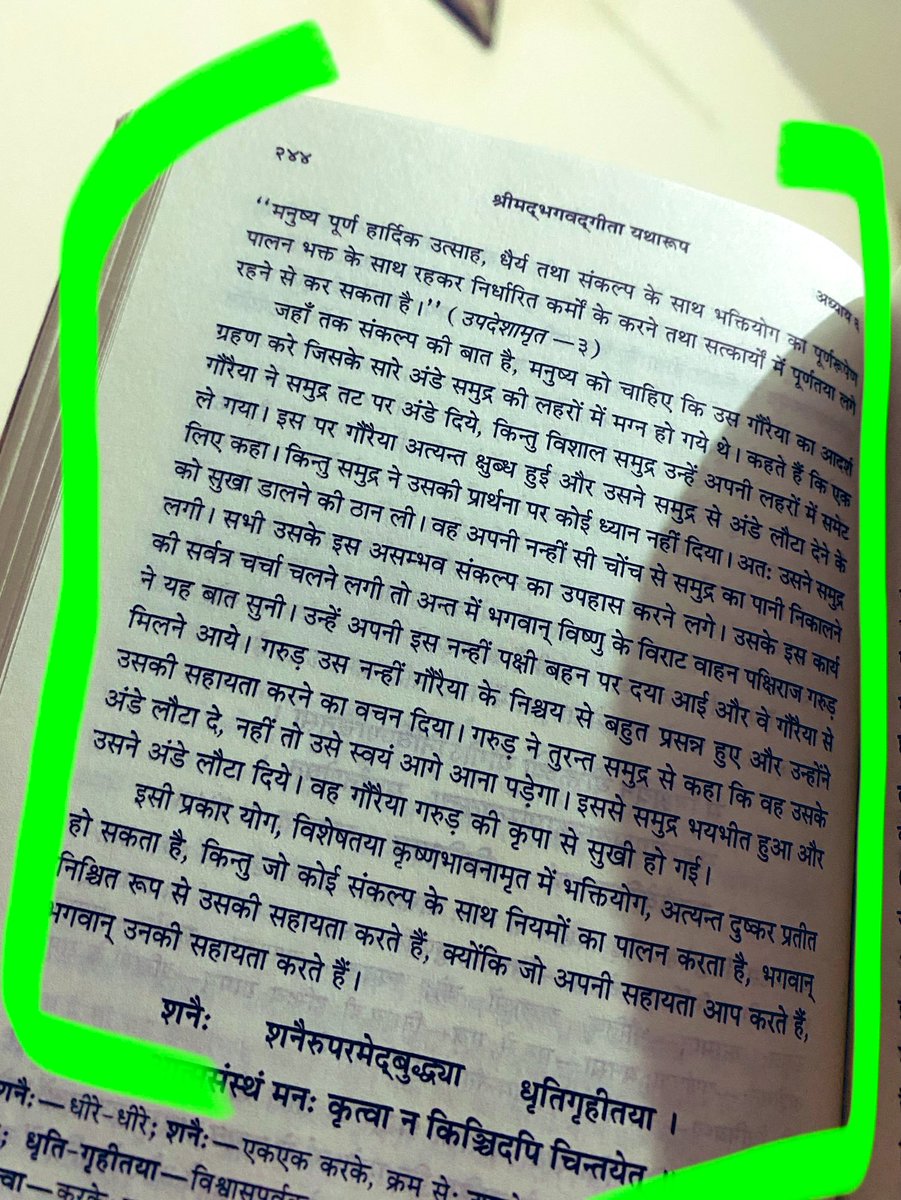 २४४
श्रीमद्भगवद्गीता यथारूप
अध्याय ६
“मनुष्य पूर्ण हार्दिक उत्साह, धैर्य तथा संकल्प के साथ भक्तियोग का पूर्णरूपेण
पालन भक्त के साथ रहकर निर्धारित कर्मों के करने तथा सत्कार्यों में पूर्णतया लगे
रहने से कर सकता है।” (उपदेशामृत—३)
जहाँ तक संकल्प की बात है, मनुष्य को चाहिए कि उस गौरैया का आदर्श
ग्रहण करे जिसके सारे अंडे समुद्र की लहरों में मग्न हो गये थे। कहते हैं कि एक
गौरैया ने समुद्र तट पर अंडे दिये, किन्तु विशाल समुद्र उन्हें अपनी लहरों में समेट
ले गया। इस पर गौरैया अत्यन्त क्षुब्ध हुई और उसने समुद्र से अंडे लौटा देने के
लिए कहा। किन्तु समुद्र ने उसकी प्रार्थना पर कोई ध्यान नहीं दिया। अतः उसने समुद्र
को सुखा डालने की ठान ली। वह अपनी नन्हीं सी चोंच से समुद्र का पानी निकालने
लगी। सभी उसके इस असम्भव संकल्प का उपहास करने लगे। उसके इस कार्य
की सर्वत्र चर्चा चलने लगी तो अन्त में भगवान् विष्णु के विराट वाहन पक्षिराज गरुड़
ने यह बात सुनी। उन्हें अपनी इस नन्हीं पक्षी बहन पर दया आई और वे गौरैया से
मिलने आये। गरुड़ उस नन्हीं गौरैया के निश्चय से बहुत प्रसन्न हुए और उन्होंने
उसकी सहायता करने का वचन दिया। गरुड़ ने तुरन्त समुद्र से कहा कि वह उसके
अंडे लौटा दे, नहीं तो उसे स्वयं आगे आना पड़ेगा। इससे समुद्र भयभीत हुआ और
उसने अंडे लौटा दिये। वह गौरैया गरुड़ की कृपा से सुखी हो गई।
इसी प्रकार योग, विशेषतया कृष्णभावनामृत में भक्तियोग, अत्यन्त दुष्कर प्रतीत
हो सकता है, किन्तु जो कोई संकल्प के साथ नियमों का पालन करता है, भगवान्
निश्चित रूप से उसकी सहायता करते हैं, क्योंकि जो अपनी सहायता आप करते हैं,
भगवान् उनकी सहायता करते हैं।
शनैः शनैरुपरमेद्बुद्ध्या धृतिगृहीतया।
मनः कृत्वा न किञ्चिदपि चिन्तयेत्
शनैः—धीरे-धीरे; शनैः—एकएक करके, क्रम से;
धृति-गृहीतया—विश्वासपूर्वक